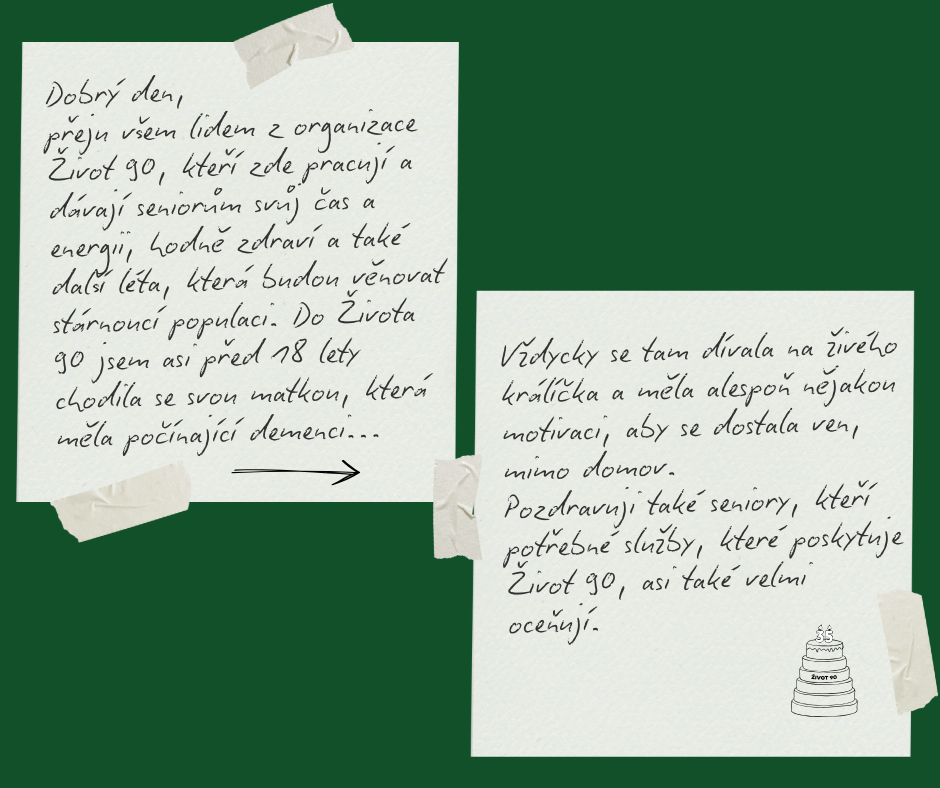 Dobrý den,
přeju všem lidem z organizace
Život 90, kteří zde pracují a
dávají seniorům svůj čas a
energii, hodně zdraví a také
další léta, která budou věnovat
stárnoucí populaci. Do Života
90 jsem asi před 18 lety
chodila se svou matkou, která
měla počínající demenci...
Vždycky se tam dívala na živého
králíčka a měla alespoň nějakou
motivaci, aby se dostala ven,
mimo domov.
Pozdravuji také seniory, kteří
potřebné služby, které poskytuje
Život 90, asi také velmi
oceňují.
35
ŽIVOT 90